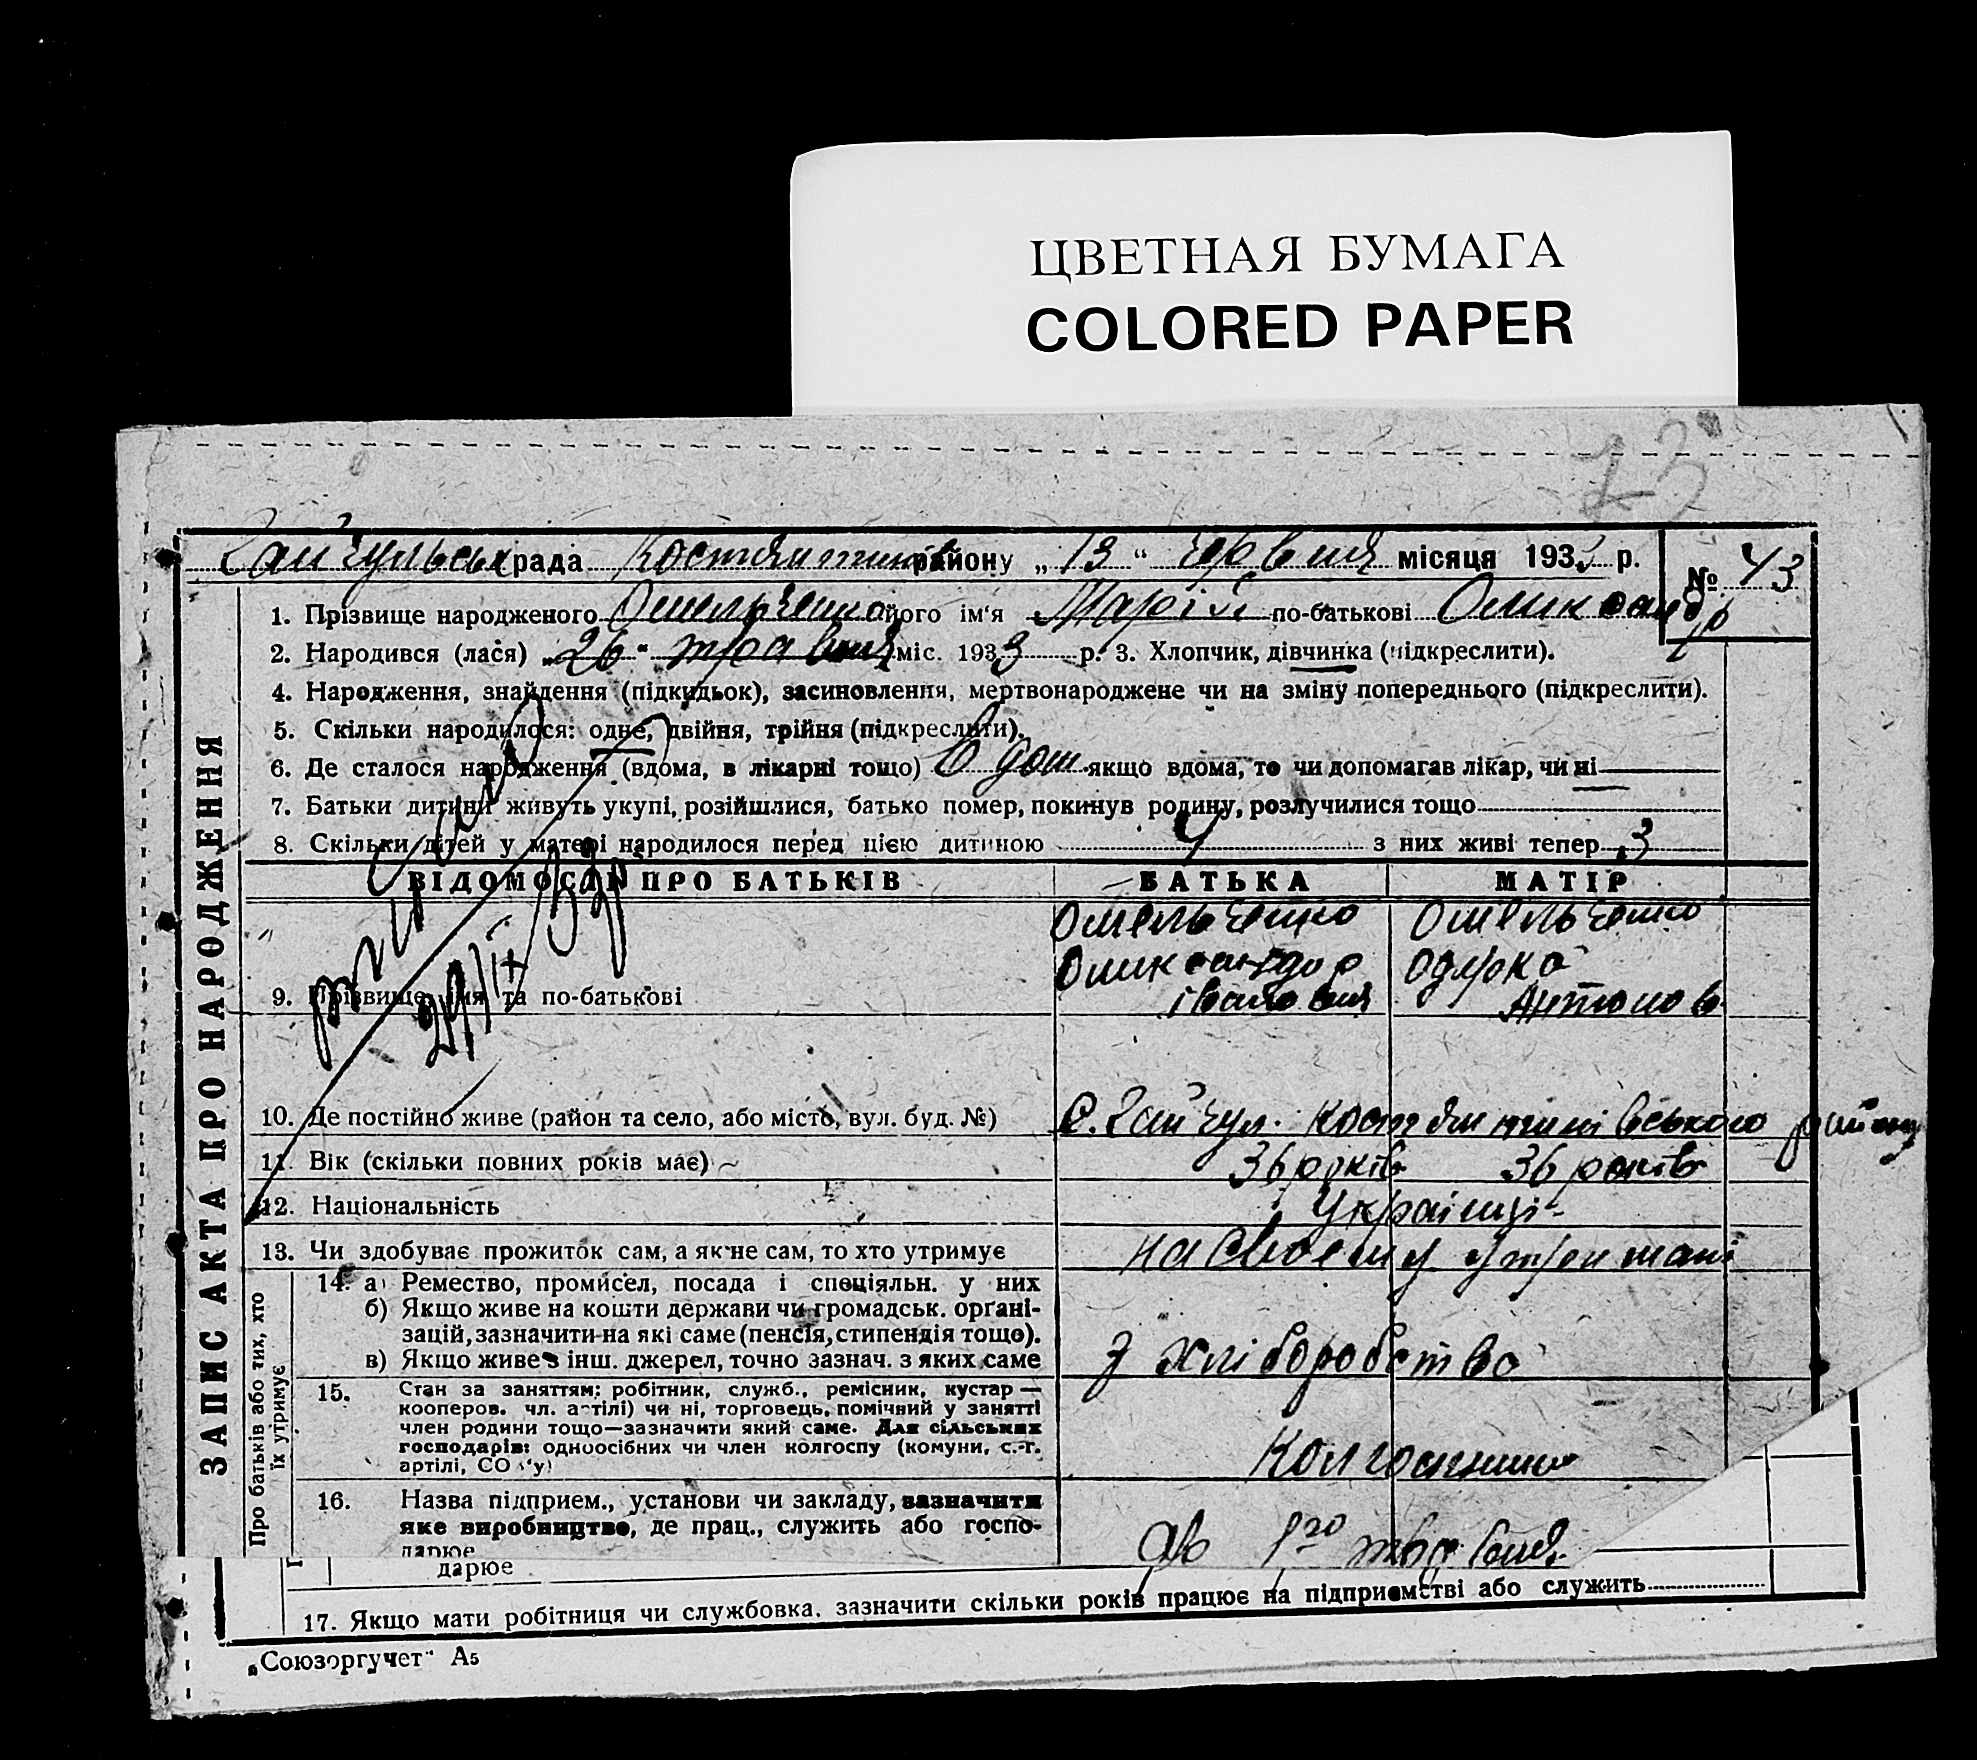 ЦВЕТНАЯ БУМАГА
COLORED PAPER
23
Гайчульська рада Костянтинів району „13“ Червня місяця 1933 р. № 43
1. Прізвище народженого Омельченко його ім'я Марія по-батькові Олександр
2. Народився (лася) „26“ травня міс. 1933 р. 3. Хлопчик, дівчинка (підкреслити).
4. Народження, знайдення (підкидьок), засиновлення, мертвонароджене чи на зміну попереднього (підкреслити).
5. Скільки народилося: одне, двійня, трійня (підкреслити).
6. Де сталося народження (вдома, в лікарні тощо) В дом якщо вдома, то чи допомагав лікар, чи ні
7. Батьки дитини живуть укупі, розійшлися, батько помер, покинув родину, розлучилися тощо
8. Скільки дітей у матері народилося перед цією дитиною 4 з них живі тепер 3
ВІДОМОСТІ ПРО БАТЬКІВ БАТЬКА МАТІР
Омельченко Омельченко
Олександр Одарка
9. Прізвище, імя та по-батькові Іванович Антонов
29/IX 33р
10. Де постійно живе (район та село, або місто, вул. буд. №) С. Гайчул. Костянтинівського району
11. Вік (скільки повних років має) 36 років 36 років
12. Національність Українці
13. Чи здобуває прожиток сам, а як не сам, то хто утримує на своему утримані
14. а) Ремество, промисел, посада і спеціяльн. у них
б) Якщо живе на кошти держави чи громадськ. органі-
зацій, зазначити на які саме (пенсія, стипендія тощо).
в) Якщо живе з інш. джерел, точно зазнач. з яких саме З хліборобство
15. Стан за заняттям: робітник, служб., ремісник, кустар —
кооперов. чл. артілі) чи ні, торговець, помічний у занятті
член родини тощо—зазначити який саме. Для сільських
господарів: одноосібних чи член колгоспу (комуни, с.-г.
артілі, СОЗ'у) Колгоспники
16. Назва підприєм., установи чи закладу, зазначити
яке виробництво, де прац., служить або госпо-
дарюе 1го травня
дарюе
17. Якщо мати робітниця чи службовка, зазначити скільки років працює на підприємстві або служить
„Союзоргучет“ А5
ЗАПИС АКТА ПРО НАРОДЖЕННЯ
Про батьків або тих, хто
їх утримує